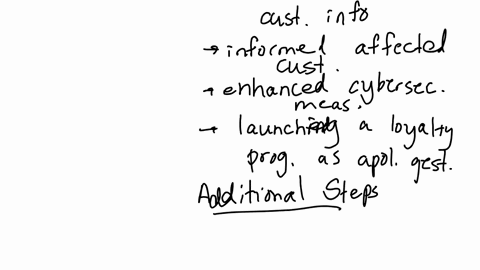 cust. info
→ informed affected
cust.
→ enhanced cybersec.
meas.
→ launching a loyalty
prog. as apol. gest.
Additional Steps